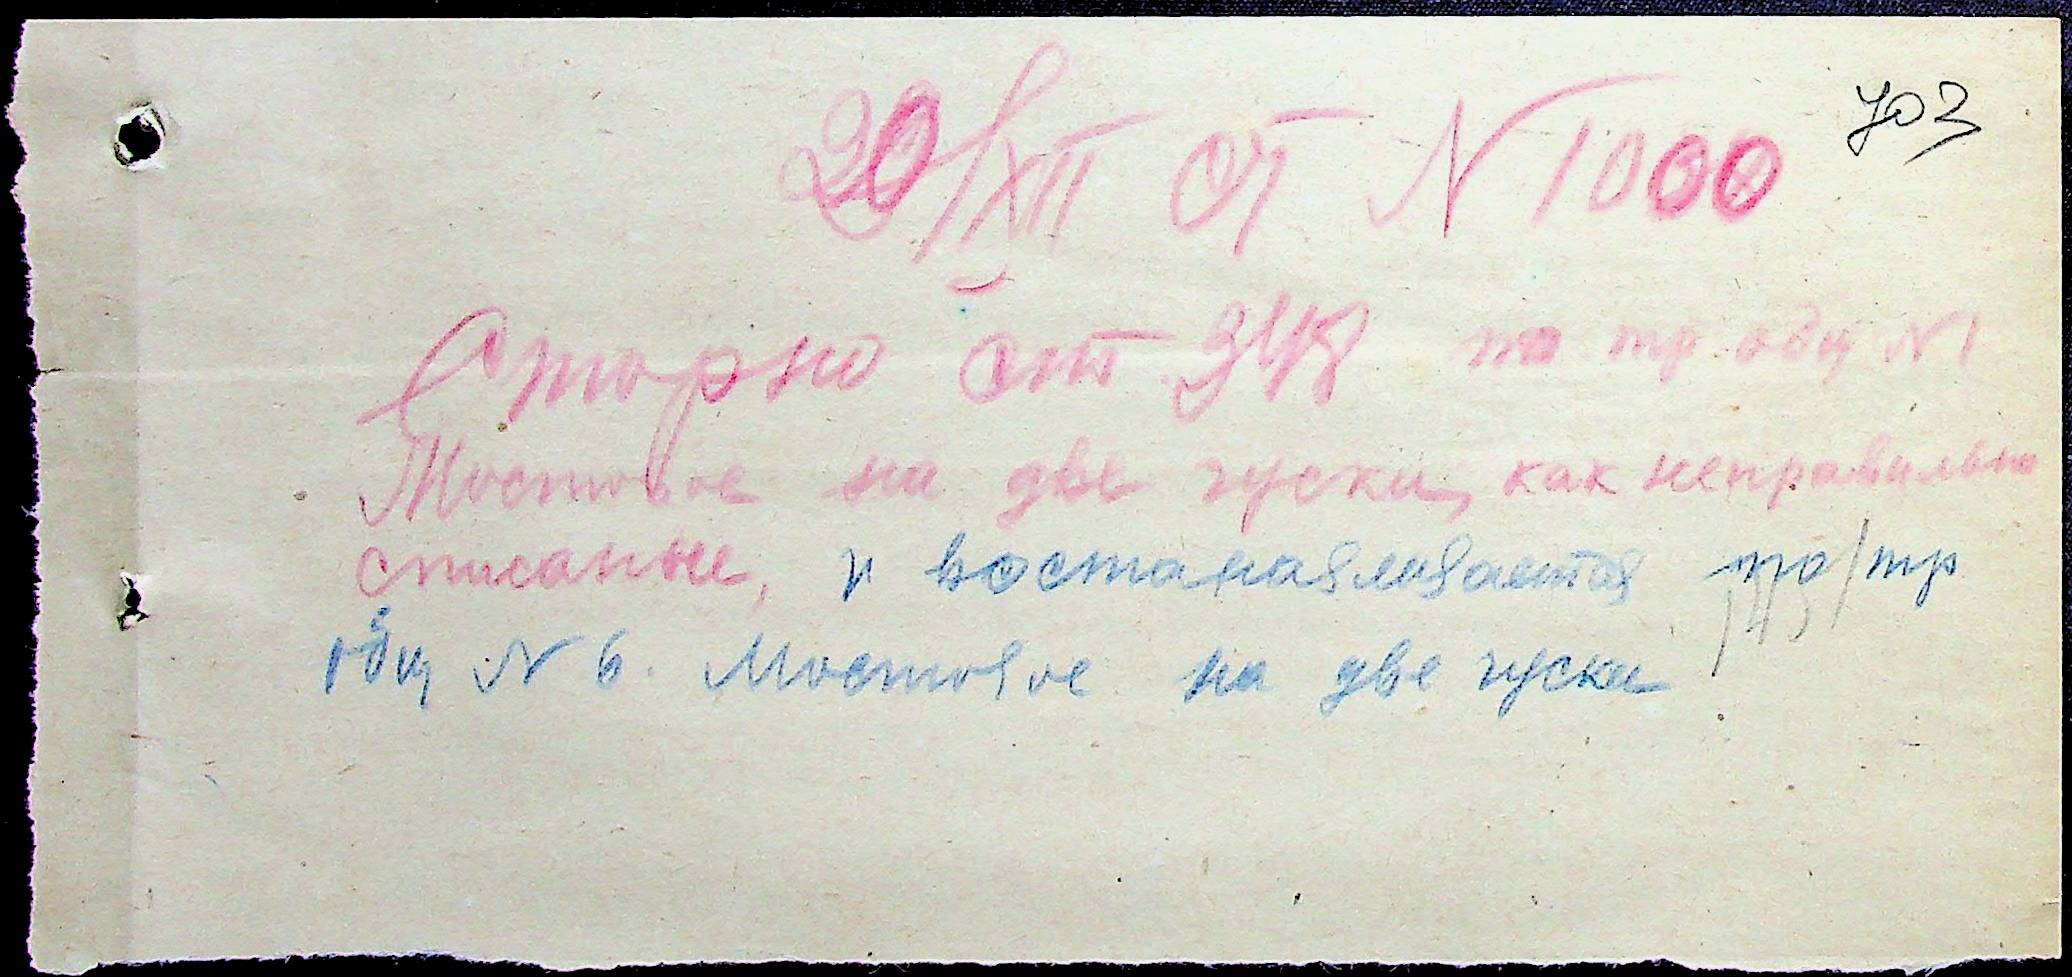 703
20/XII от N 1000
Сторно ст 348 по тр общ N 1
Мостовое на две гуски, как неправильно
списаные, и востанавливается по/тр
общ N 6. Мостовое на две гуски